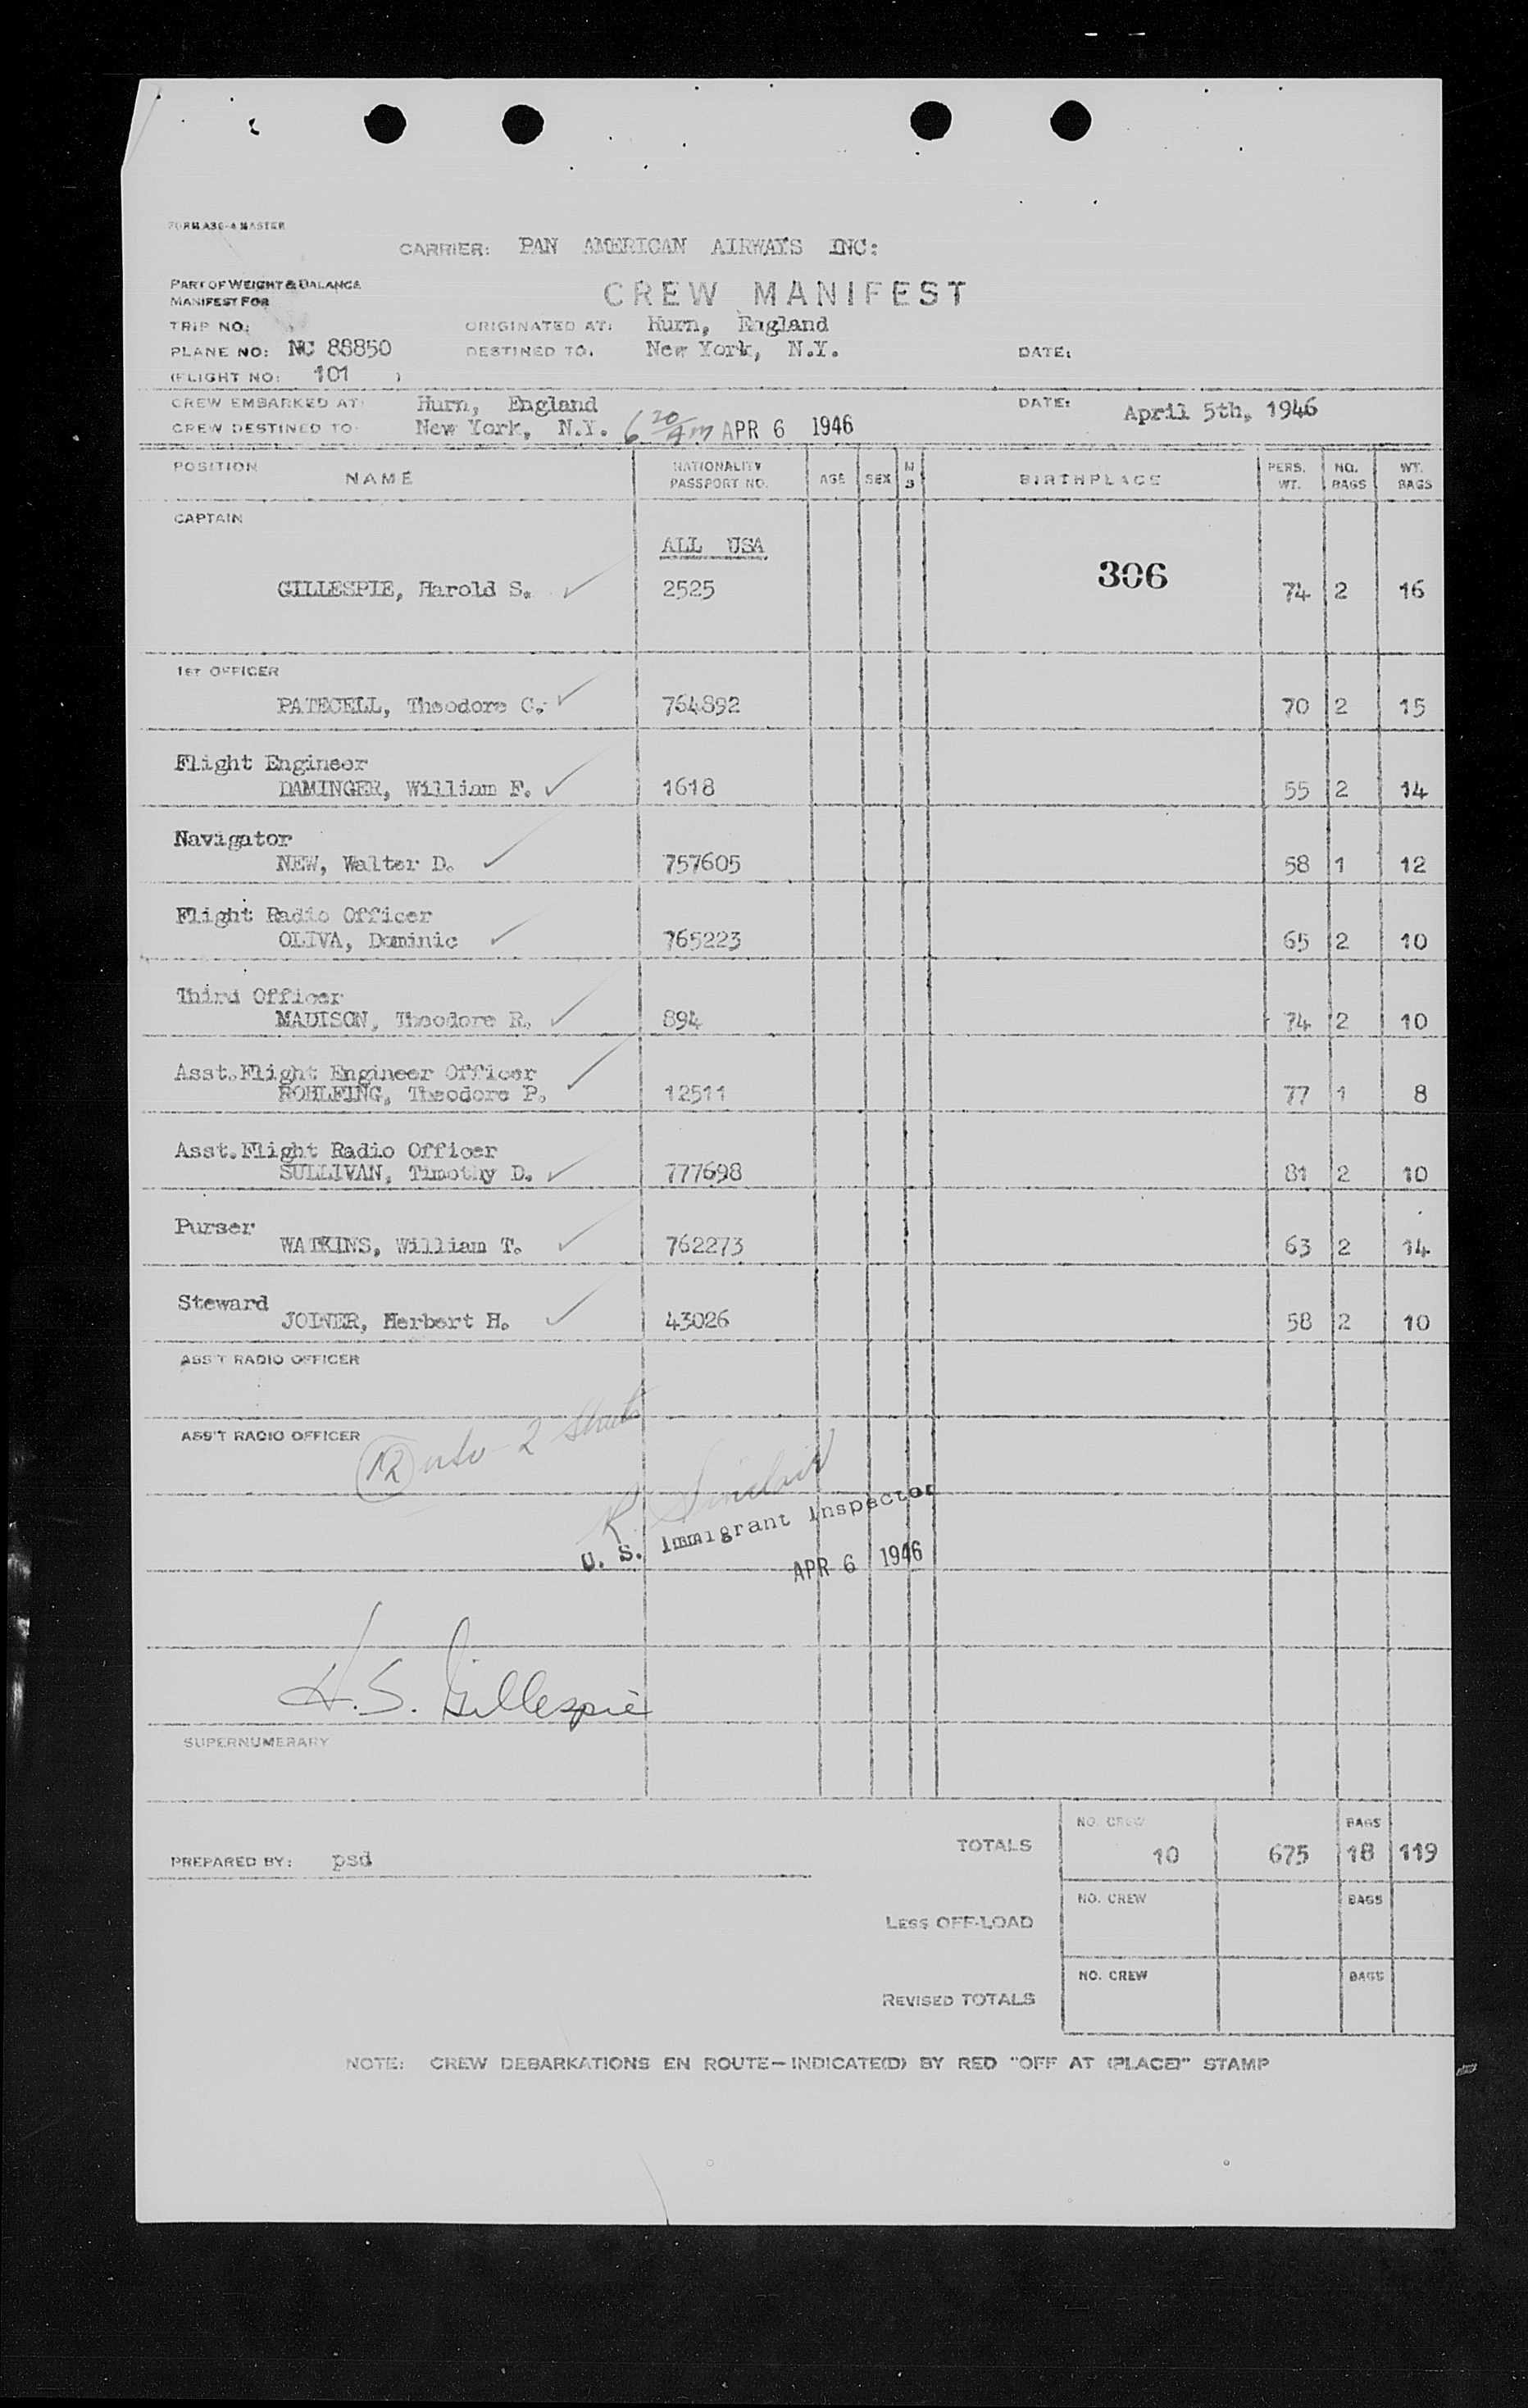 FORM A30-A MASTER
CARRIER: PAN AMERICAN AIRWAYS INC:
PART OF WEIGHT & BALANCE
MANIFEST FOR
CREW MANIFEST
TRIP NO: ORIGINATED AT: Hurn, England
PLANE NO: NC 88850 DESTINED TO. New York, N.Y. DATE:
(FLIGHT NO: 101 )
CREW EMBARKED AT: Hurn, England DATE: April 5th, 1946
CREW DESTINED TO New York, N.Y. 6 20/AM APR 6 1946
POSITION NAME NATIONALITY PASSPORT NO. AGE SEX M S BIRTHPLACE PERS. WT. NO. BAGS WT. BAGS
CAPTAIN
ALL USA
306
GILLESPIE, Harold S. 2525 74 2 16
1ST OFFICER
PATECELL, Theodore C. 764892 70 2 15
Flight Engineer
DAMINGER, William F. 1618 55 2 14
Navigator
NEW, Walter D. 757605 58 1 12
Flight Radio Officer
OLIVA, Dominic 765223 65 2 10
Third Officer
MADISON, Theodore R. 894 74 2 10
Asst.Flight Engineer Officer
ROHLFING, Theodore P. 12511 77 1 8
Asst.Flight Radio Officer
SULLIVAN, Timothy D. 777698 81 2 10
Purser
WATKINS, William T. 762273 63 2 14
Steward
JOINER, Herbert H. 43026 58 2 10
ASS'T RADIO OFFICER
ASS'T RADIO OFFICER
2 Sheets
R. Sinclair
U. S. Immigrant Inspector
APR 6 1946
H. S. Gillespie
SUPERNUMERARY
NO. CREW BAGS
TOTALS 10 675 18 119
PREPARED BY: psd
NO. CREW BAGS
LESS OFF-LOAD
NO. CREW BAGS
REVISED TOTALS
NOTE: CREW DEBARKATIONS EN ROUTE—INDICATE(D) BY RED "OFF AT (PLACE)" STAMP